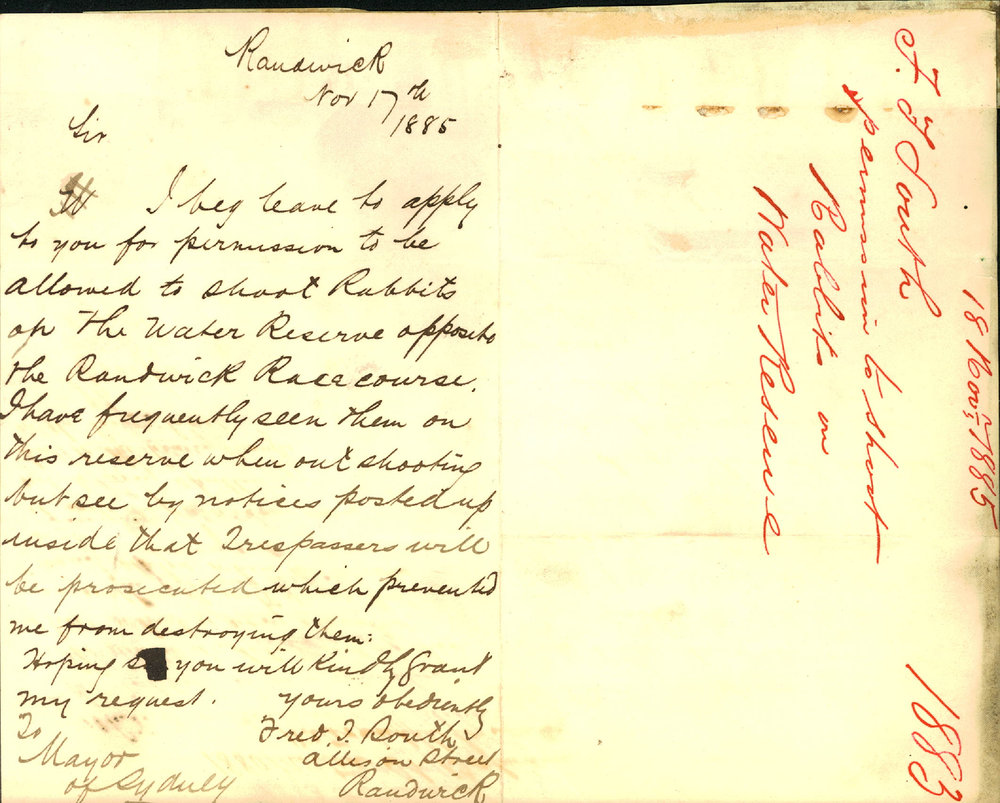 Randwick
Nov 17th
1885
Sir
I beg leave to apply
to you for permission to be
allowed to shoot Rabbits
on The Water Reserve opposite
the Randwick Race course.
I have frequently seen them on
this reserve when out shooting
but see by notices posted up
inside that Trespassers will
be prosecuted which prevented
me from destroying them:
Hoping you will Kindly grant
my request. yours obediently
Fred J. South
To allison Street
Mayor Randwick
of Sydney
F. J South
permission to shoot
Rabbits on
Water Reserve
18 Novr 1885
1883